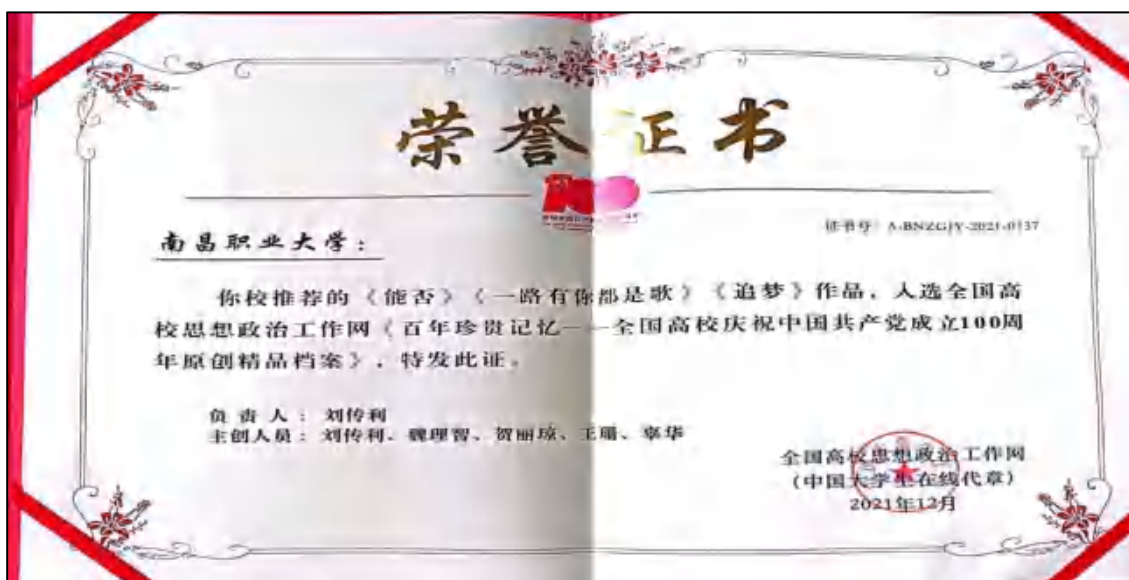 荣誉证书
证书号：A-BNZGJY-2021-0137
南昌职业大学：
你校推荐的《能否》《一路有你都是歌》《追梦》作品，入选全国高
校思想政治工作网《百年珍贵记忆——全国高校庆祝中国共产党成立100周
年原创精品档案》，特发此证。
负责人：刘传利
主创人员：刘传利、魏理智、贺丽琼、王珊、辜华
全国高校思想政治工作网
（中国大学生在线代章）
2021年12月